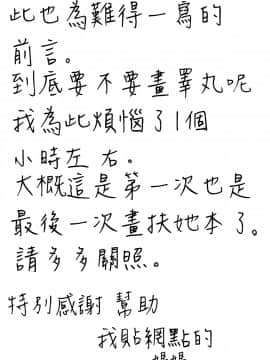 此也為難得一寫的
前言。
到底要不要畫睪丸呢
我為此煩惱了1個
小時左右。
大概這是第一次也是
最後一次畫扶她本了。
請多多關照。
特別感謝 幫助
我貼網點的
媽媽